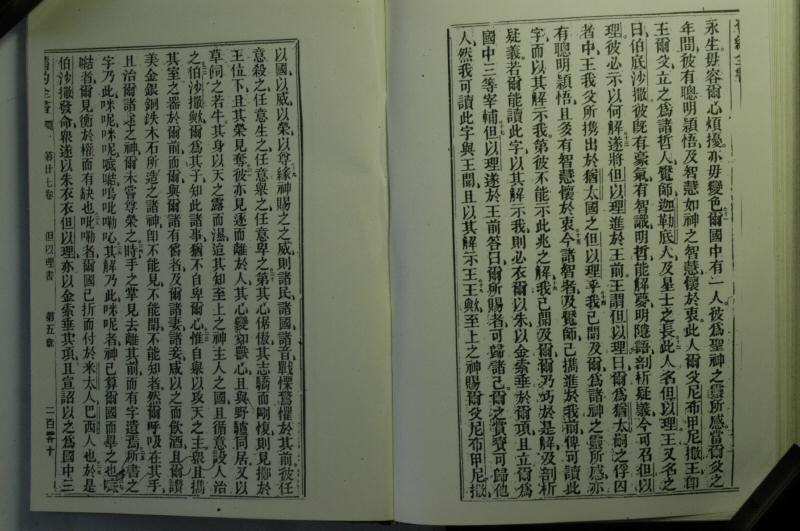 永生毋容爾心煩擾亦毋變色爾國中有一人彼爲聖神之靈所感當爾父之
年間彼有聰明穎悟及智慧如神之智慧懷於衷此人爾父尼布甲尼撒王卽
王爾父立之爲諸哲人覺師迦勒底人及星士之長此人名但以理王又名之
曰伯底沙撒彼旣有豪氣有智識明哲能解憂明隱語剖析疑義今可召但以
理彼必示以何解遂將但以理進於王前王謂但以理曰爾爲猶太嗣之俘囚
者中王我父所攜出於猶太國之但以理乎我已聞及爾爲諸神之靈所感亦
有聰明穎悟且多有智慧懷於衷今諸智者及覺師已攜進於我前俾可讀此
字而以其解示我第彼不能示此兆之解我已聞及爾爾乃巧於是解及剖析
疑義若爾能讀此字以其解示我則必衣爾以朱以金索垂於爾項且立爾爲
國中三等宰輔但以理遂於王前答曰爾所賜者可歸諸己爾之賞賚可歸他
人然我可讀此字與王聞且以其解示王王歟至上之神賜爾父尼布甲尼撒
以國以威以榮以尊緣神賜之之威則諸民諸國諸音戰慄驚懼於其前彼任
意殺之任意生之任意舉之任意卑之第其心倨傲其志驕而剛愎則見擲於
王位下且其榮見奪彼亦見逐而離於人其心變如獸心且與野驢同居又以
草飼之若牛其身以天之露而濕迨其知至上之神主人之國且循意設人治
之伯沙撒歟爾爲其子知此諸事猶不自卑爾心惟自舉以攻天之主衆且攜
其室之器於爾前而爾與爾諸有爵者及爾諸妻諸妾咸以之而飲酒且爾讚
美金銀銅鉄木石所造之諸神卽不能見不能聞不能知者然爾呼吸在其手
且治爾諸途之神爾未嘗尊榮之時手之掌見去離其前而有字遺焉所書之
字乃此咪呢咪呢嘁嘞嗚吡嘞吣其解乃此咪呢者神已算爾國而畢之也嘁
嘞者爾見衡於權而有缺也吡嘞者爾國已折而付於米太人巴西人也於是
伯沙撒發命衆遂以朱衣衣但以理亦以金索垂其項且宣詔以之爲國中三
舊約全書 第廿七卷 但以理書 第五章 二百零十